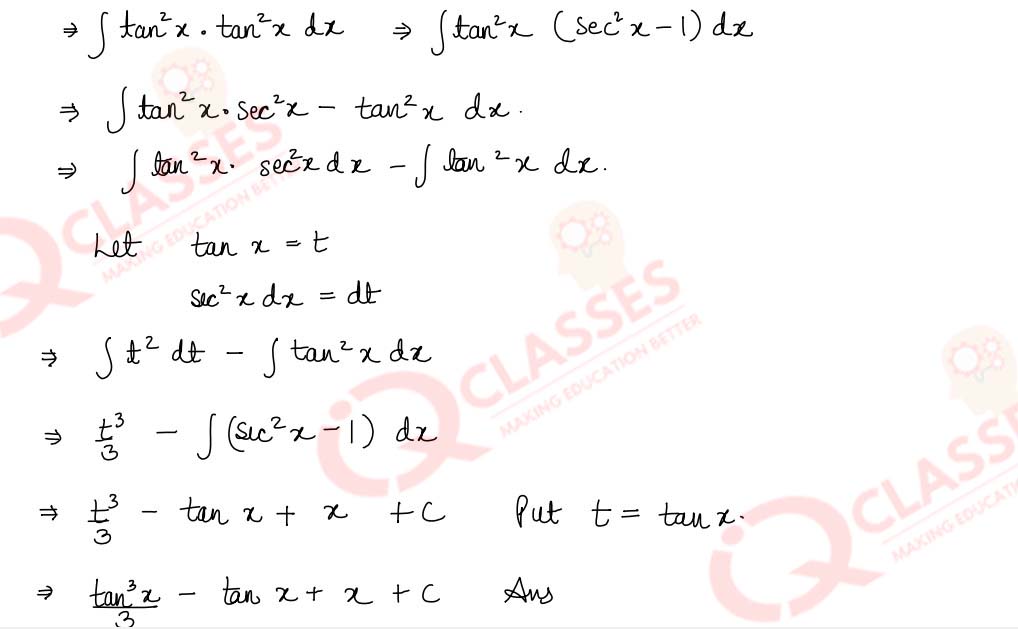 ⇒ ∫ tan²x · tan²x dx ⇒ ∫ tan²x (sec²x − 1) dx
⇒ ∫ tan²x · sec²x − tan²x dx.
⇒ ∫ tan²x · sec²x dx − ∫ tan²x dx.
Let tan x = t
sec²x dx = dt
⇒ ∫ t² dt − ∫ tan²x dx
⇒ t³/3 − ∫ (sec²x − 1) dx
⇒ t³/3 − tan x + x + C Put t = tan x.
⇒ tan³x/3 − tan x + x + C Ans
CLASSES
MAKING EDUCATION BETTER
IQ CLASSES
MAKING EDUCATION BETTER
IQ CLASSES
MAKING EDUCATION